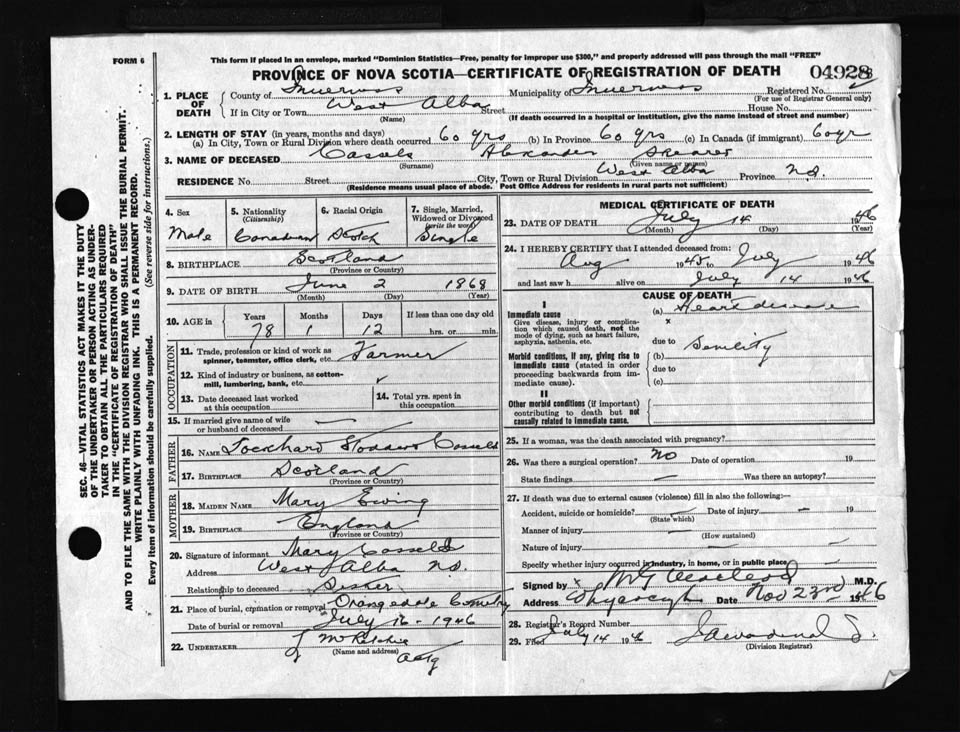 FORM 6
This form if placed in an envelope, marked "Dominion Statistics—Free, penalty for improper use $300," and properly addressed will pass through the mail "FREE"
PROVINCE OF NOVA SCOTIA—CERTIFICATE OF REGISTRATION OF DEATH
04928
1. PLACE OF DEATH
County of Inverness Municipality of Inverness Registered No.
(For use of Registrar General only)
If in City or Town West Alba Street House No.
(Name) (If death occurred in a hospital or institution, give the name instead of street and number)
2. LENGTH OF STAY (in years, months and days)
(a) In City, Town or Rural Division where death occurred 60 yrs (b) In Province 60 yrs (c) In Canada (if immigrant) 60 yr
3. NAME OF DECEASED Cassels Alexander
(Surname) (Given name or names)
RESIDENCE No. Street City, Town or Rural Division West Alba Province N.S.
(Residence means usual place of abode. Post Office Address for residents in rural parts not sufficient)
4. Sex Male
5. Nationality (Citizenship) Canadian
6. Racial Origin Scotch
7. Single, Married, Widowed or Divorced (write the word) Single
8. BIRTHPLACE Scotland
(Province or Country)
9. DATE OF BIRTH June 2 1868
(Month) (Day) (Year)
10. AGE in Years Months Days If less than one day old
78 1 12 hrs. or min.
OCCUPATION
11. Trade, profession or kind of work as spinner, teamster, office clerk, etc. Farmer
12. Kind of industry or business, as cotton-mill, lumbering, bank, etc.
13. Date deceased last worked at this occupation
14. Total yrs. spent in this occupation
15. If married give name of wife or husband of deceased —
FATHER
16. NAME Lockhard Cassels
17. BIRTHPLACE Scotland
(Province or Country)
MOTHER
18. MAIDEN NAME Mary Ewing
19. BIRTHPLACE England
(Province or Country)
20. Signature of informant Mary Cassels
Address West Alba N.S.
Relationship to deceased Sister
21. Place of burial, cremation or removal Orangedale Cemetry
Date of burial or removal July 16 - 1946
22. UNDERTAKER
(Name and address)
MEDICAL CERTIFICATE OF DEATH
23. DATE OF DEATH July 14 1946
(Month) (Day) (Year)
24. I HEREBY CERTIFY that I attended deceased from:
Aug 1945 to July 1946
and last saw h alive on July 14 1946
CAUSE OF DEATH
I
Immediate cause
Give disease, injury or complication which caused death, not the mode of dying, such as heart failure, asphyxia, asthenia, etc.
(a) Heart disease
x
due to
Morbid conditions, if any, giving rise to immediate cause (stated in order proceeding backwards from immediate cause).
(b) Senility
due to
(c)
II
Other morbid conditions (if important) contributing to death but not causally related to immediate cause.
25. If a woman, was the death associated with pregnancy?
26. Was there a surgical operation? No Date of operation 19
State findings — Was there an autopsy?
27. If death was due to external causes (violence) fill in also the following:—
Accident, suicide or homicide? Date of injury — 19
(State which)
Manner of injury
(How sustained)
Nature of injury —
Specify whether injury occurred in industry, in home, or in public place —
Signed by x Macleod M.D.
Address Whycocogh Date Nov 23rd 1946
28. Registrar's Record Number
29. Filed July 14 1946
(Division Registrar)
SEC. 46—VITAL STATISTICS ACT MAKES IT THE DUTY
OF THE UNDERTAKER OR PERSON ACTING AS UNDER-
TAKER TO OBTAIN ALL THE PARTICULARS REQUIRED
IN THE "CERTIFICATE OF REGISTRATION OF DEATH"
AND TO FILE THE SAME WITH THE DIVISION REGISTRAR WHO SHALL ISSUE THE BURIAL PERMIT.
WRITE PLAINLY WITH UNFADING INK. THIS IS A PERMANENT RECORD.
Every item of information should be carefully supplied. (See reverse side for instructions.)